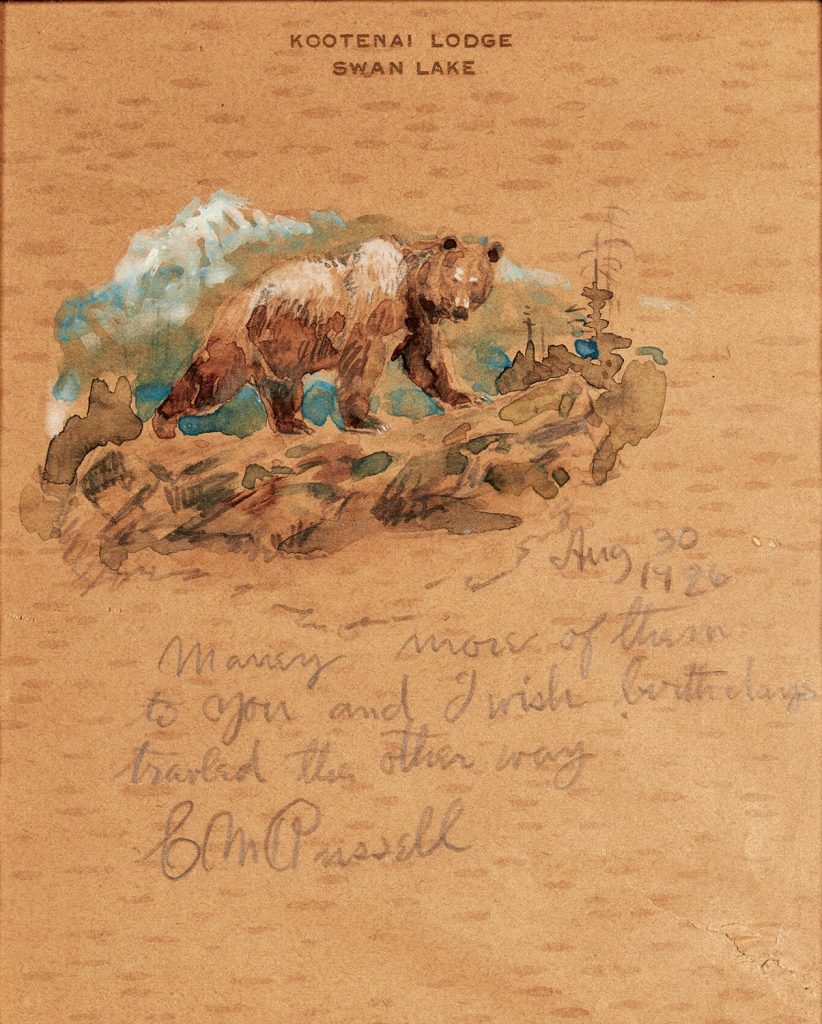 KOOTENAI LODGE
SWAN LAKE
Aug 30
1926
Maney more of them
to you and I wish birthdays
travled the other way
C M Russell